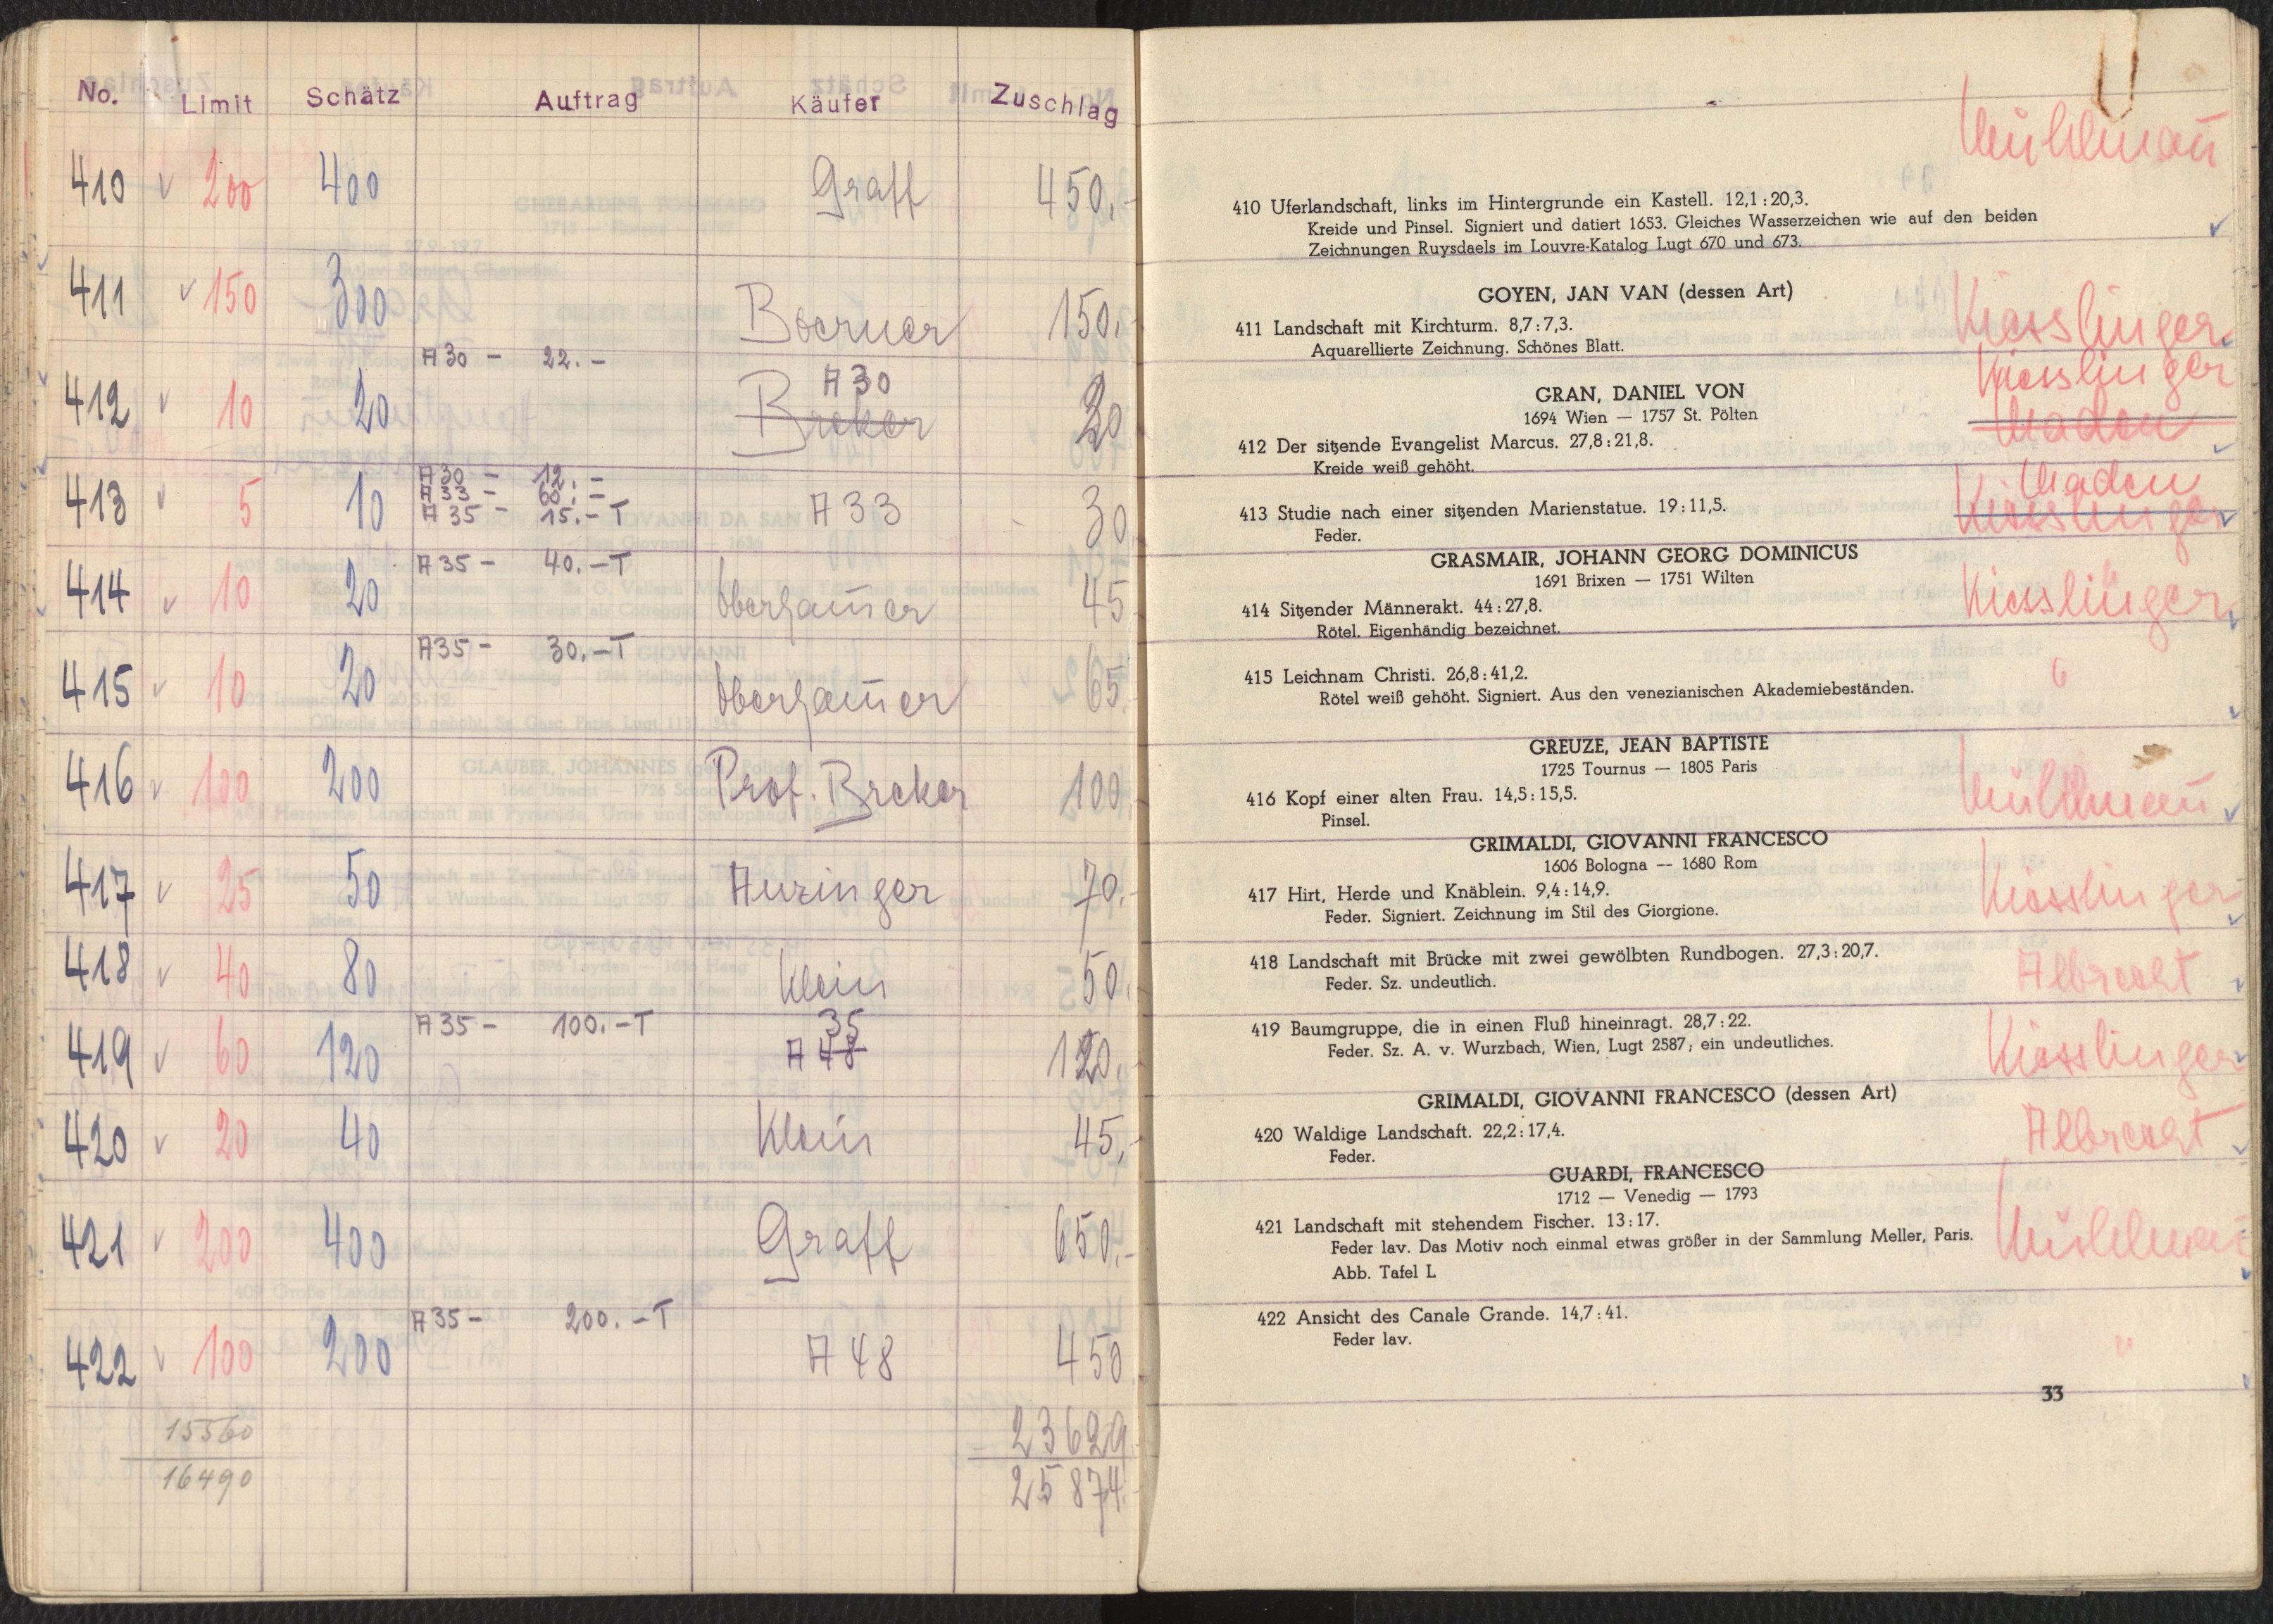 No. Limit Schätz Auftrag Käufer Zuschlag
410 √ 200 400 Graff 450,-
411 √ 150 300 Boerner 150,-
A 30 - 22. -
412 √ 10 20 A 30 Breker 20
A 30 - 12. -
A 33 - 60. -
A 35 - 15. - T
413 √ 5 10 A 33 30
A 35 - 40. - T
414 √ 10 20 45
A 35 - 30. - T
415 √ 10 20 65
416 √ 100 200 Prof. Breker 100,-
417 √ 25 50 70,-
418 √ 40 80 Klein 50,
A 35 - 100. - T
35
419 √ 60 120 A 48 120,
420 √ 20 40 Klein 45,-
421 √ 200 400 Graff 650,-
A 35 - 200. - T
422 √ 100 200 A 48 450
15560 23629
16490 25874.
Mühlmañ
410 Uferlandschaft, links im Hintergrunde ein Kastell. 12,1 : 20,3.
Kreide und Pinsel. Signiert und datiert 1653. Gleiches Wasserzeichen wie auf den beiden
Zeichnungen Ruysdaels im Louvre-Katalog Lugt 670 und 673.
GOYEN, JAN VAN (dessen Art)
Kiesslinger
411 Landschaft mit Kirchturm. 8,7 : 7,3.
Aquarellierte Zeichnung. Schönes Blatt.
Kiesslinger
GRAN, DANIEL VON
1694 Wien — 1757 St. Pölten
Maden
412 Der sitzende Evangelist Marcus. 27,8 : 21,8.
Kreide weiß gehöht.
Maden
413 Studie nach einer sitzenden Marienstatue. 19 : 11,5.
Kiesslinger
Feder.
GRASMAIR, JOHANN GEORG DOMINICUS
1691 Brixen — 1751 Wilten
414 Sitzender Männerakt. 44 : 27,8.
Kiesslinger
Rötel. Eigenhändig bezeichnet.
415 Leichnam Christi. 26,8 : 41,2.
Rötel weiß gehöht. Signiert. Aus den venezianischen Akademiebeständen.
GREUZE, JEAN BAPTISTE
1725 Tournus — 1805 Paris
416 Kopf einer alten Frau. 14,5 : 15,5.
Mühlmañ
Pinsel.
GRIMALDI, GIOVANNI FRANCESCO
1606 Bologna -- 1680 Rom
417 Hirt, Herde und Knäblein. 9,4 : 14,9.
Kiesslinger
Feder. Signiert. Zeichnung im Stil des Giorgione.
418 Landschaft mit Brücke mit zwei gewölbten Rundbogen. 27,3 : 20,7.
Albrecht
Feder. Sz. undeutlich.
419 Baumgruppe, die in einen Fluß hineinragt. 28,7 : 22.
Kiesslinger
Feder. Sz. A. v. Wurzbach, Wien, Lugt 2587, ein undeutliches.
GRIMALDI, GIOVANNI FRANCESCO (dessen Art)
420 Waldige Landschaft. 22,2 : 17,4.
Albrecht
Feder.
GUARDI, FRANCESCO
1712 — Venedig — 1793
421 Landschaft mit stehendem Fischer. 13 : 17.
Mühlmañ
Feder lav. Das Motiv noch einmal etwas größer in der Sammlung Meller, Paris.
Abb. Tafel L
422 Ansicht des Canale Grande. 14,7 : 41.
Feder lav.
33